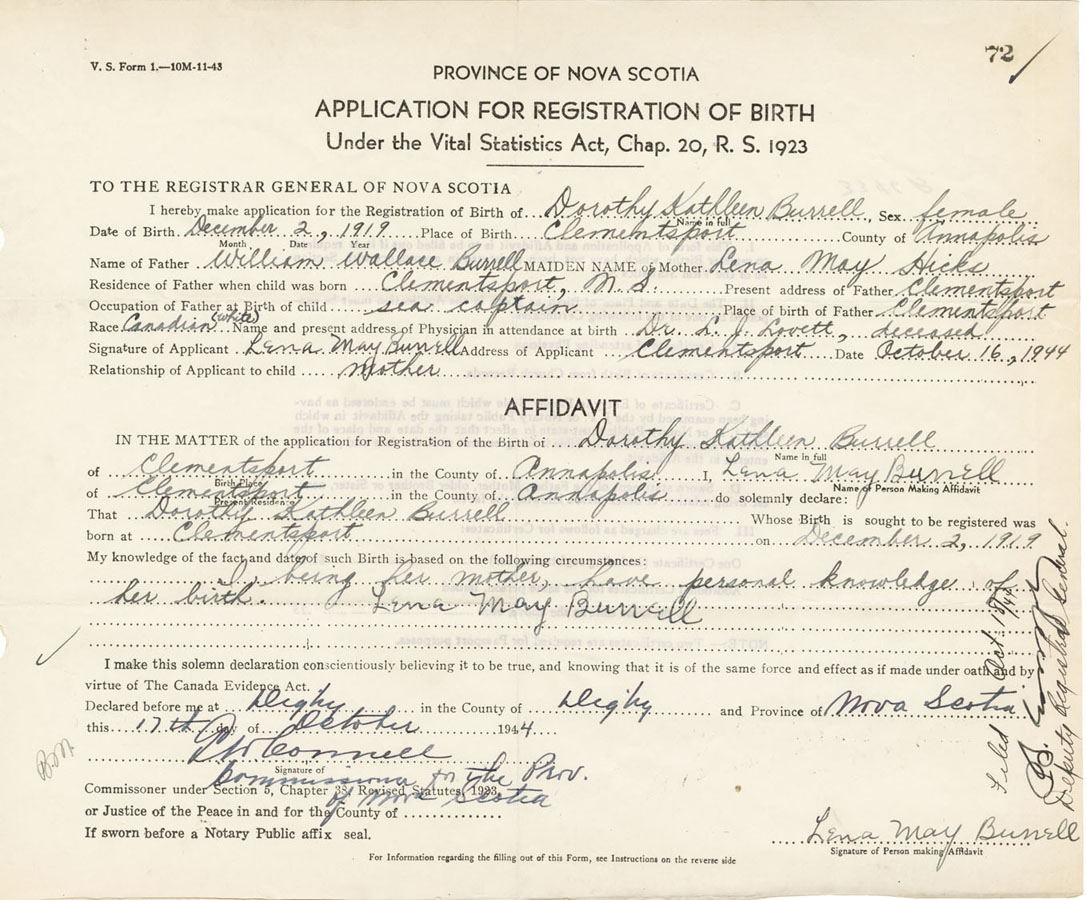 72
V. S. Form 1.—10M-11-43
PROVINCE OF NOVA SCOTIA
APPLICATION FOR REGISTRATION OF BIRTH
Under the Vital Statistics Act, Chap. 20, R. S. 1923
TO THE REGISTRAR GENERAL OF NOVA SCOTIA
I hereby make application for the Registration of Birth of Dorothy Kathleen Burrell, Sex female
Name in full
Date of Birth December 2, 1919 Place of Birth Clementsport County of Annapolis
Month Date Year
Name of Father William Wallace Burrell MAIDEN NAME of Mother Lena May Hicks
Residence of Father when child was born Clementsport, N.S. Present address of Father Clementsport
Occupation of Father at Birth of child sea captain Place of birth of Father Clementsport
Race Canadian (white) Name and present address of Physician in attendance at birth Dr. L. J. Lovett, deceased
Signature of Applicant Lena May Burrell Address of Applicant Clementsport Date October 16, 1944
Relationship of Applicant to child mother
AFFIDAVIT
IN THE MATTER of the application for Registration of the Birth of Dorothy Kathleen Burrell
Name in full
of Clementsport in the County of Annapolis I, Lena May Burrell
Birth Place Name of Person Making Affidavit
of Clementsport in the County of Annapolis do solemnly declare:
Present Residence
That Dorothy Kathleen Burrell Whose Birth is sought to be registered was
born at Clementsport on December 2, 1919
My knowledge of the fact and date of such Birth is based on the following circumstances:
I being her mother, have personal knowledge of
her birth. Lena May Burrell
I make this solemn declaration conscientiously believing it to be true, and knowing that it is of the same force and effect as if made under oath and by
virtue of The Canada Evidence Act.
Declared before me at Digby in the County of Digby and Province of Nova Scotia
this 17th day of October 1944
Connell
Signature of
Commissioner for the Prov.
of Nova Scotia
Commissoner under Section 5, Chapter 38, Revised Statutes, 1923,
or Justice of the Peace in and for the County of
If sworn before a Notary Public affix seal.
Lena May Burrell
Signature of Person making Affidavit
For Information regarding the filling out of this Form, see Instructions on the reverse side
Filed Oct
Deputy Registrar General.